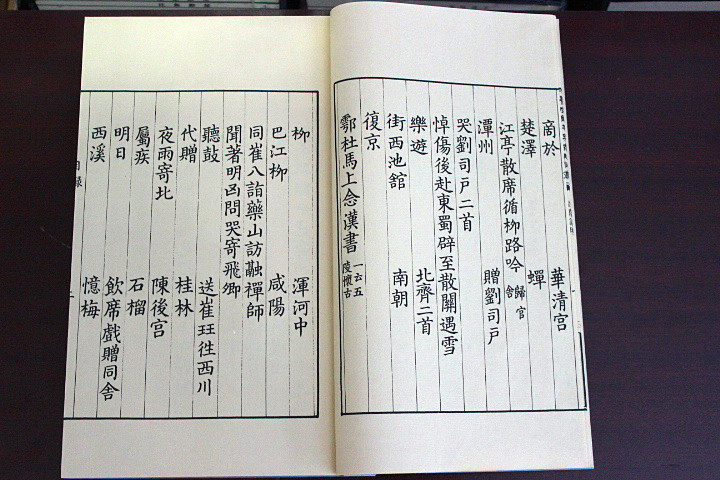 商於 華清宮
楚澤 蟬
江亭散席循柳路吟 歸官舍
潭州 贈劉司戶
哭劉司戶二首
悼傷後赴東蜀辟至散關遇雪
樂遊 北齊二首
街西池館 南朝
復京
鄠杜馬上念漢書 一云五陵懷古
柳 渾河中
巴江柳 咸陽
同崔八詣藥山訪融禪師
聞著明凶問哭寄飛卿
聽鼓 送崔珏往西川
代贈 桂林
夜雨寄北 陳後宮
屬疾 石榴
明日 飲席戲贈同舍
西溪 憶梅
目錄